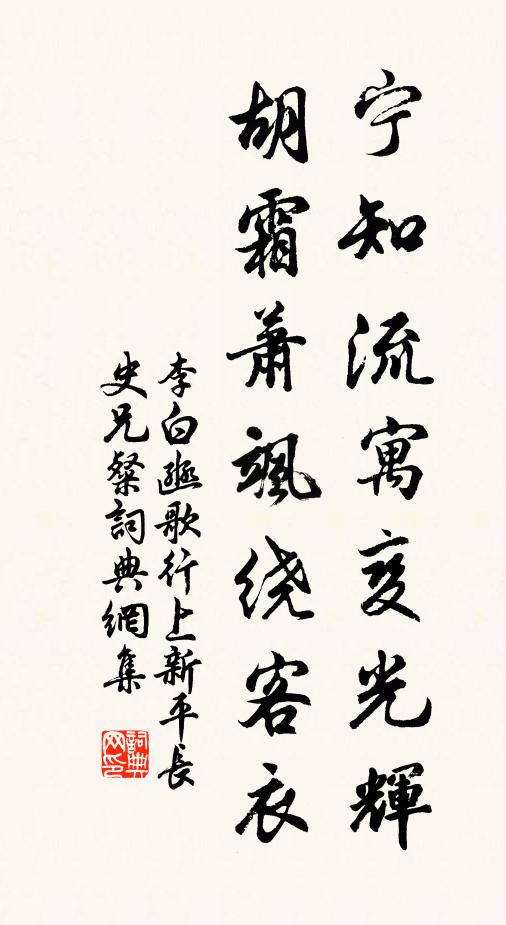 宁知流寓变光輝
胡霜蕭颯绕客衣
李白豳歌行上新平長
史兄粲詞典網集
詞典
网印